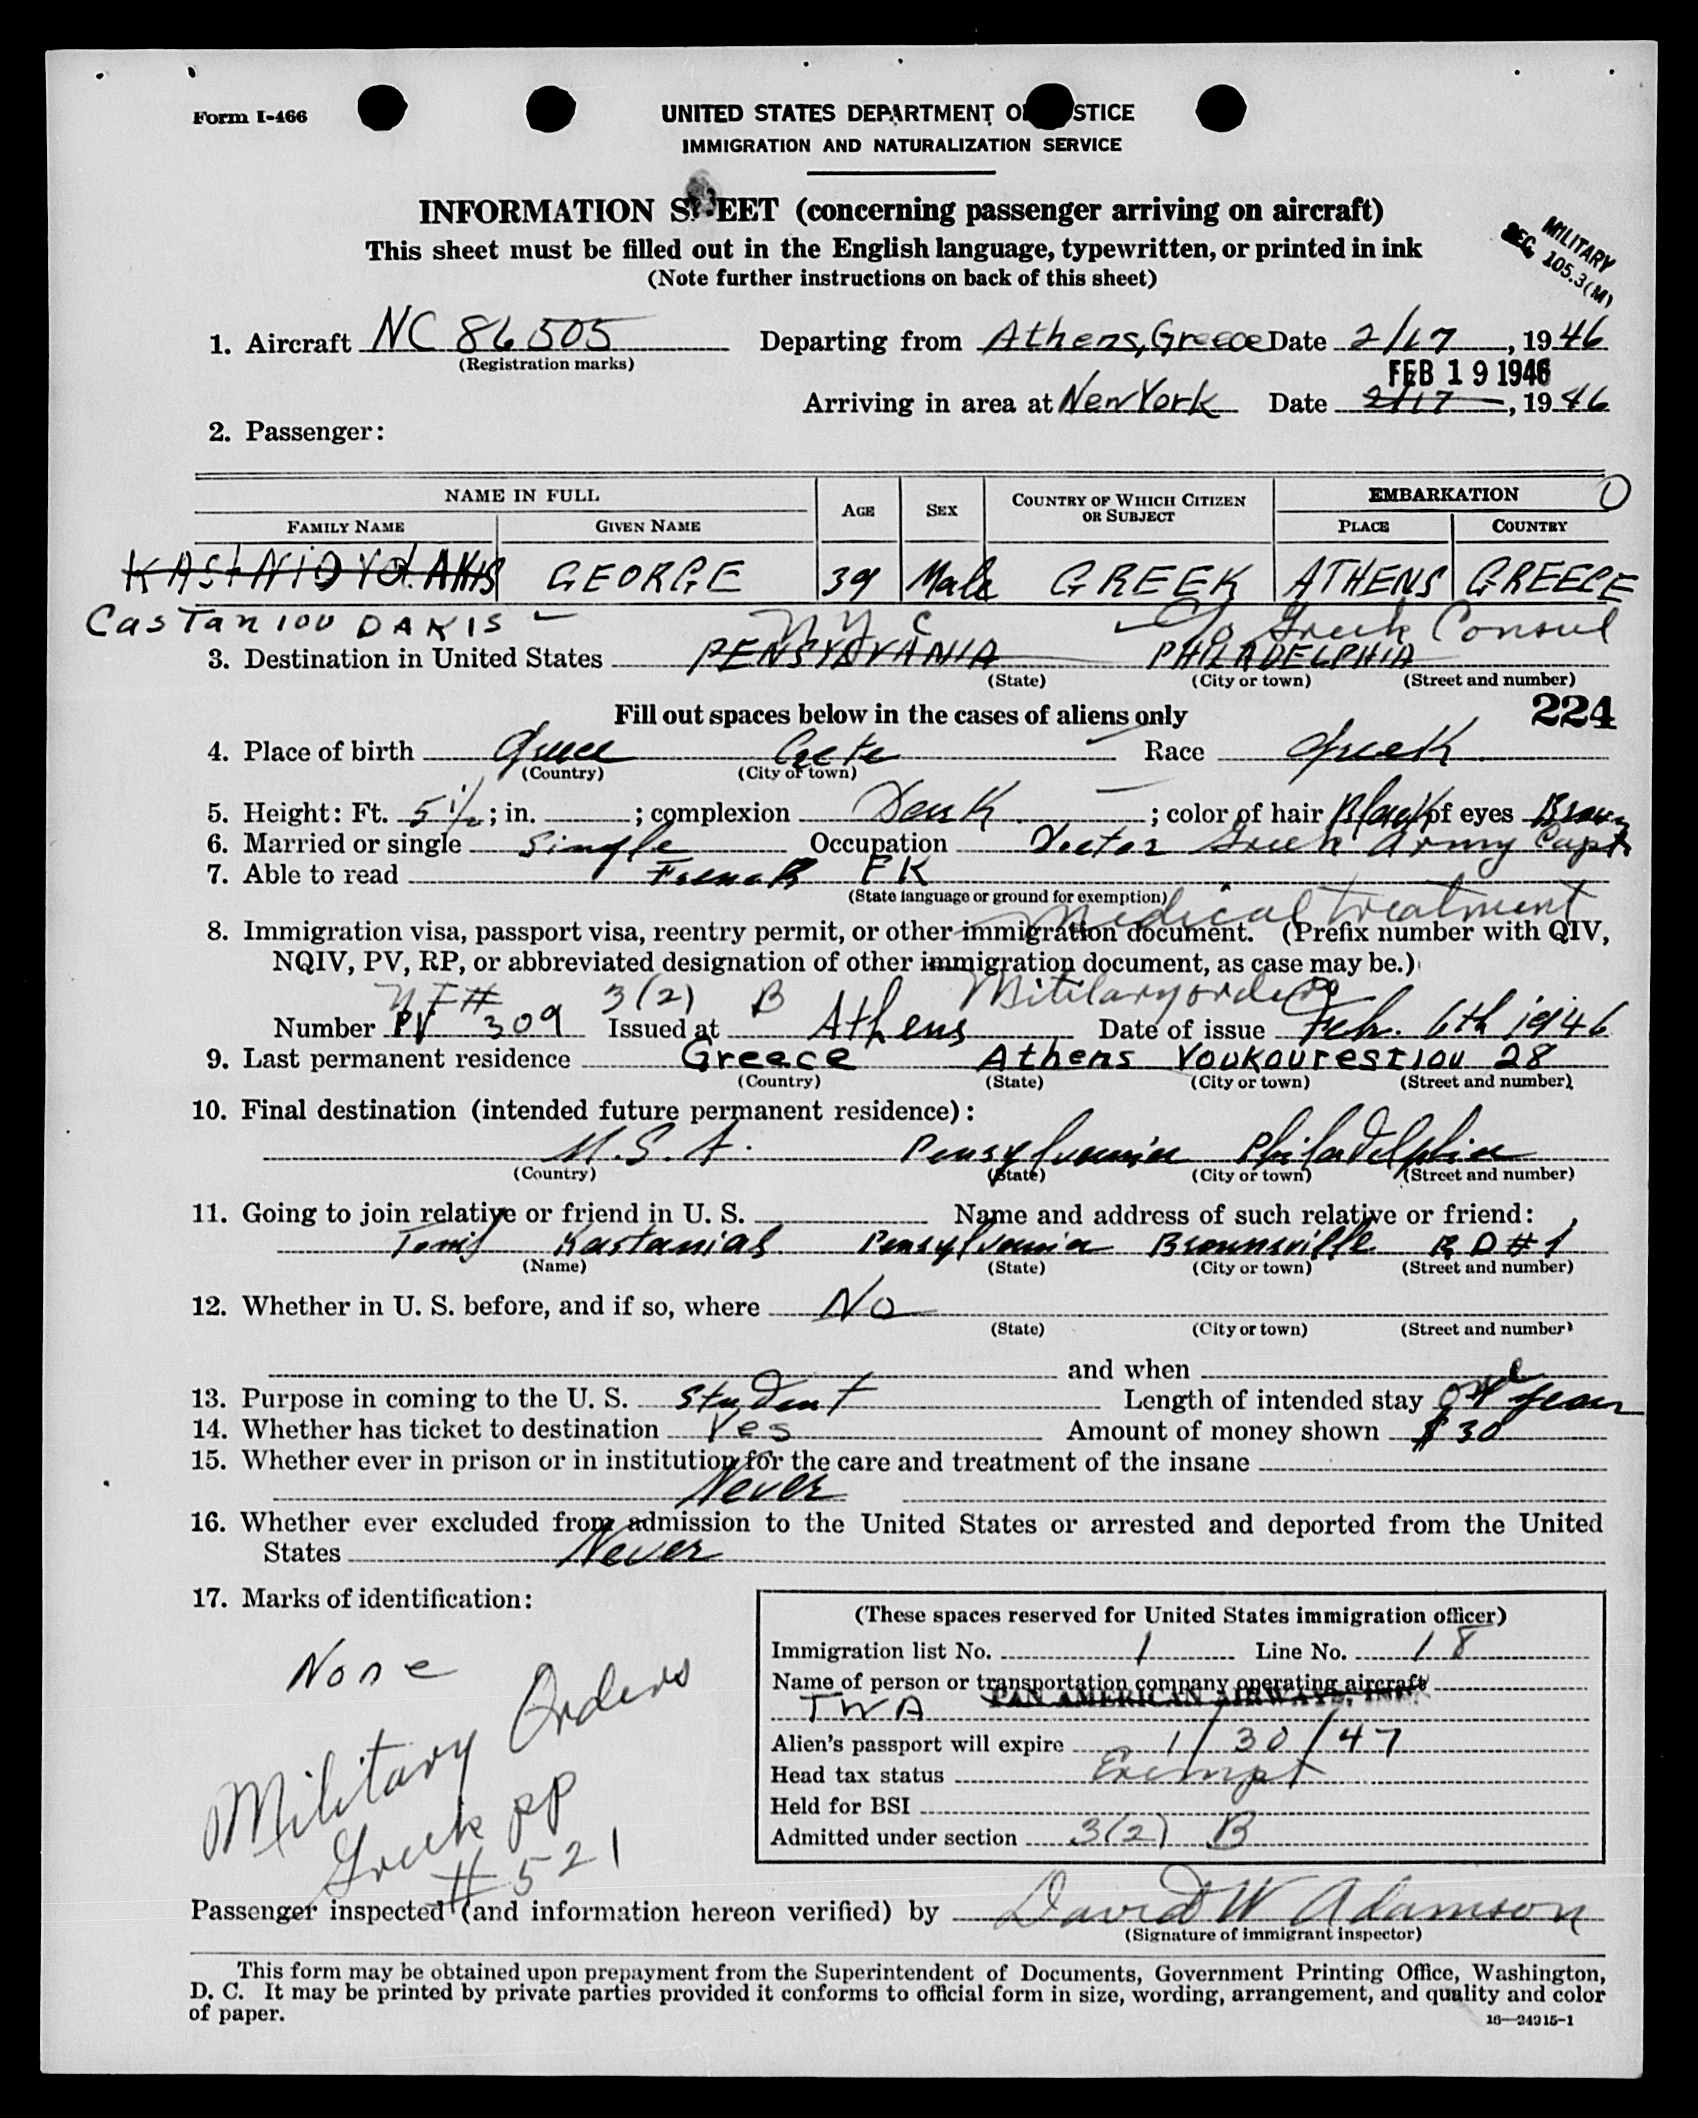 Form I-466
UNITED STATES DEPARTMENT O STICE
IMMIGRATION AND NATURALIZATION SERVICE
INFORMATION S EET (concerning passenger arriving on aircraft)
This sheet must be filled out in the English language, typewritten, or printed in ink
(Note further instructions on back of this sheet)
MILITARY
SEC. 105.3(M)
1. Aircraft NC 86505 Departing from Athens, Greece Date 2/17, 1946
(Registration marks)
FEB 19 1946
Arriving in area at New York Date 2/17, 1946
2. Passenger:
NAME IN FULL
AGE SEX COUNTRY OF WHICH CITIZEN OR SUBJECT
EMBARKATION O
FAMILY NAME GIVEN NAME PLACE COUNTRY
GEORGE 39 Male GREEK ATHENS GREECE
CasTaniouDAKIS
N Y C c/o Greek Consul
3. Destination in United States PENSYLVANIA PHILADELPHIA
(State) (City or town) (Street and number)
Fill out spaces below in the cases of aliens only 224
4. Place of birth Greece Crete Race Greek
(Country) (City or town)
5. Height: Ft. 5 1/2; in. ; complexion Dark; color of hair Black of eyes Brown
6. Married or single Single Occupation Doctor Greek Army Capt
7. Able to read French FK
(State language or ground for exemption)
Medical treatment
8. Immigration visa, passport visa, reentry permit, or other immigration document. (Prefix number with QIV,
NQIV, PV, RP, or abbreviated designation of other immigration document, as case may be.)
3(2) B Military orders
Number PV 309 Issued at Athens Date of issue Feb. 6th 1946
9. Last permanent residence Greece Athens Voukourestiou 28
(Country) (State) (City or town) (Street and number)
10. Final destination (intended future permanent residence):
U.S.A. Pensylvania Philadelphia
(Country) (State) (City or town) (Street and number)
11. Going to join relative or friend in U. S. Name and address of such relative or friend:
Kastanias Pensylvania Brownsville RD #1
(Name) (State) (City or town) (Street and number)
12. Whether in U. S. before, and if so, where No
(State) (City or town) (Street and number)
and when
13. Purpose in coming to the U. S. Student Length of intended stay one year
14. Whether has ticket to destination Yes Amount of money shown $30
15. Whether ever in prison or in institution for the care and treatment of the insane
Never
16. Whether ever excluded from admission to the United States or arrested and deported from the United
States Never
17. Marks of identification:
None
Military Orders
Greek pp
#521
(These spaces reserved for United States immigration officer)
Immigration list No. 1 Line No. 18
Name of person or transportation company operating aircraft
TWA PAN AMERICAN AIRWAYS, INC.
Alien's passport will expire 1/30/47
Head tax status Exempt
Held for BSI
Admitted under section 3(2) B
Passenger inspected (and information hereon verified) by David W Adamson
(Signature of immigrant inspector)
This form may be obtained upon prepayment from the Superintendent of Documents, Government Printing Office, Washington,
D. C. It may be printed by private parties provided it conforms to official form in size, wording, arrangement, and quality and color
of paper.
16—24915-1